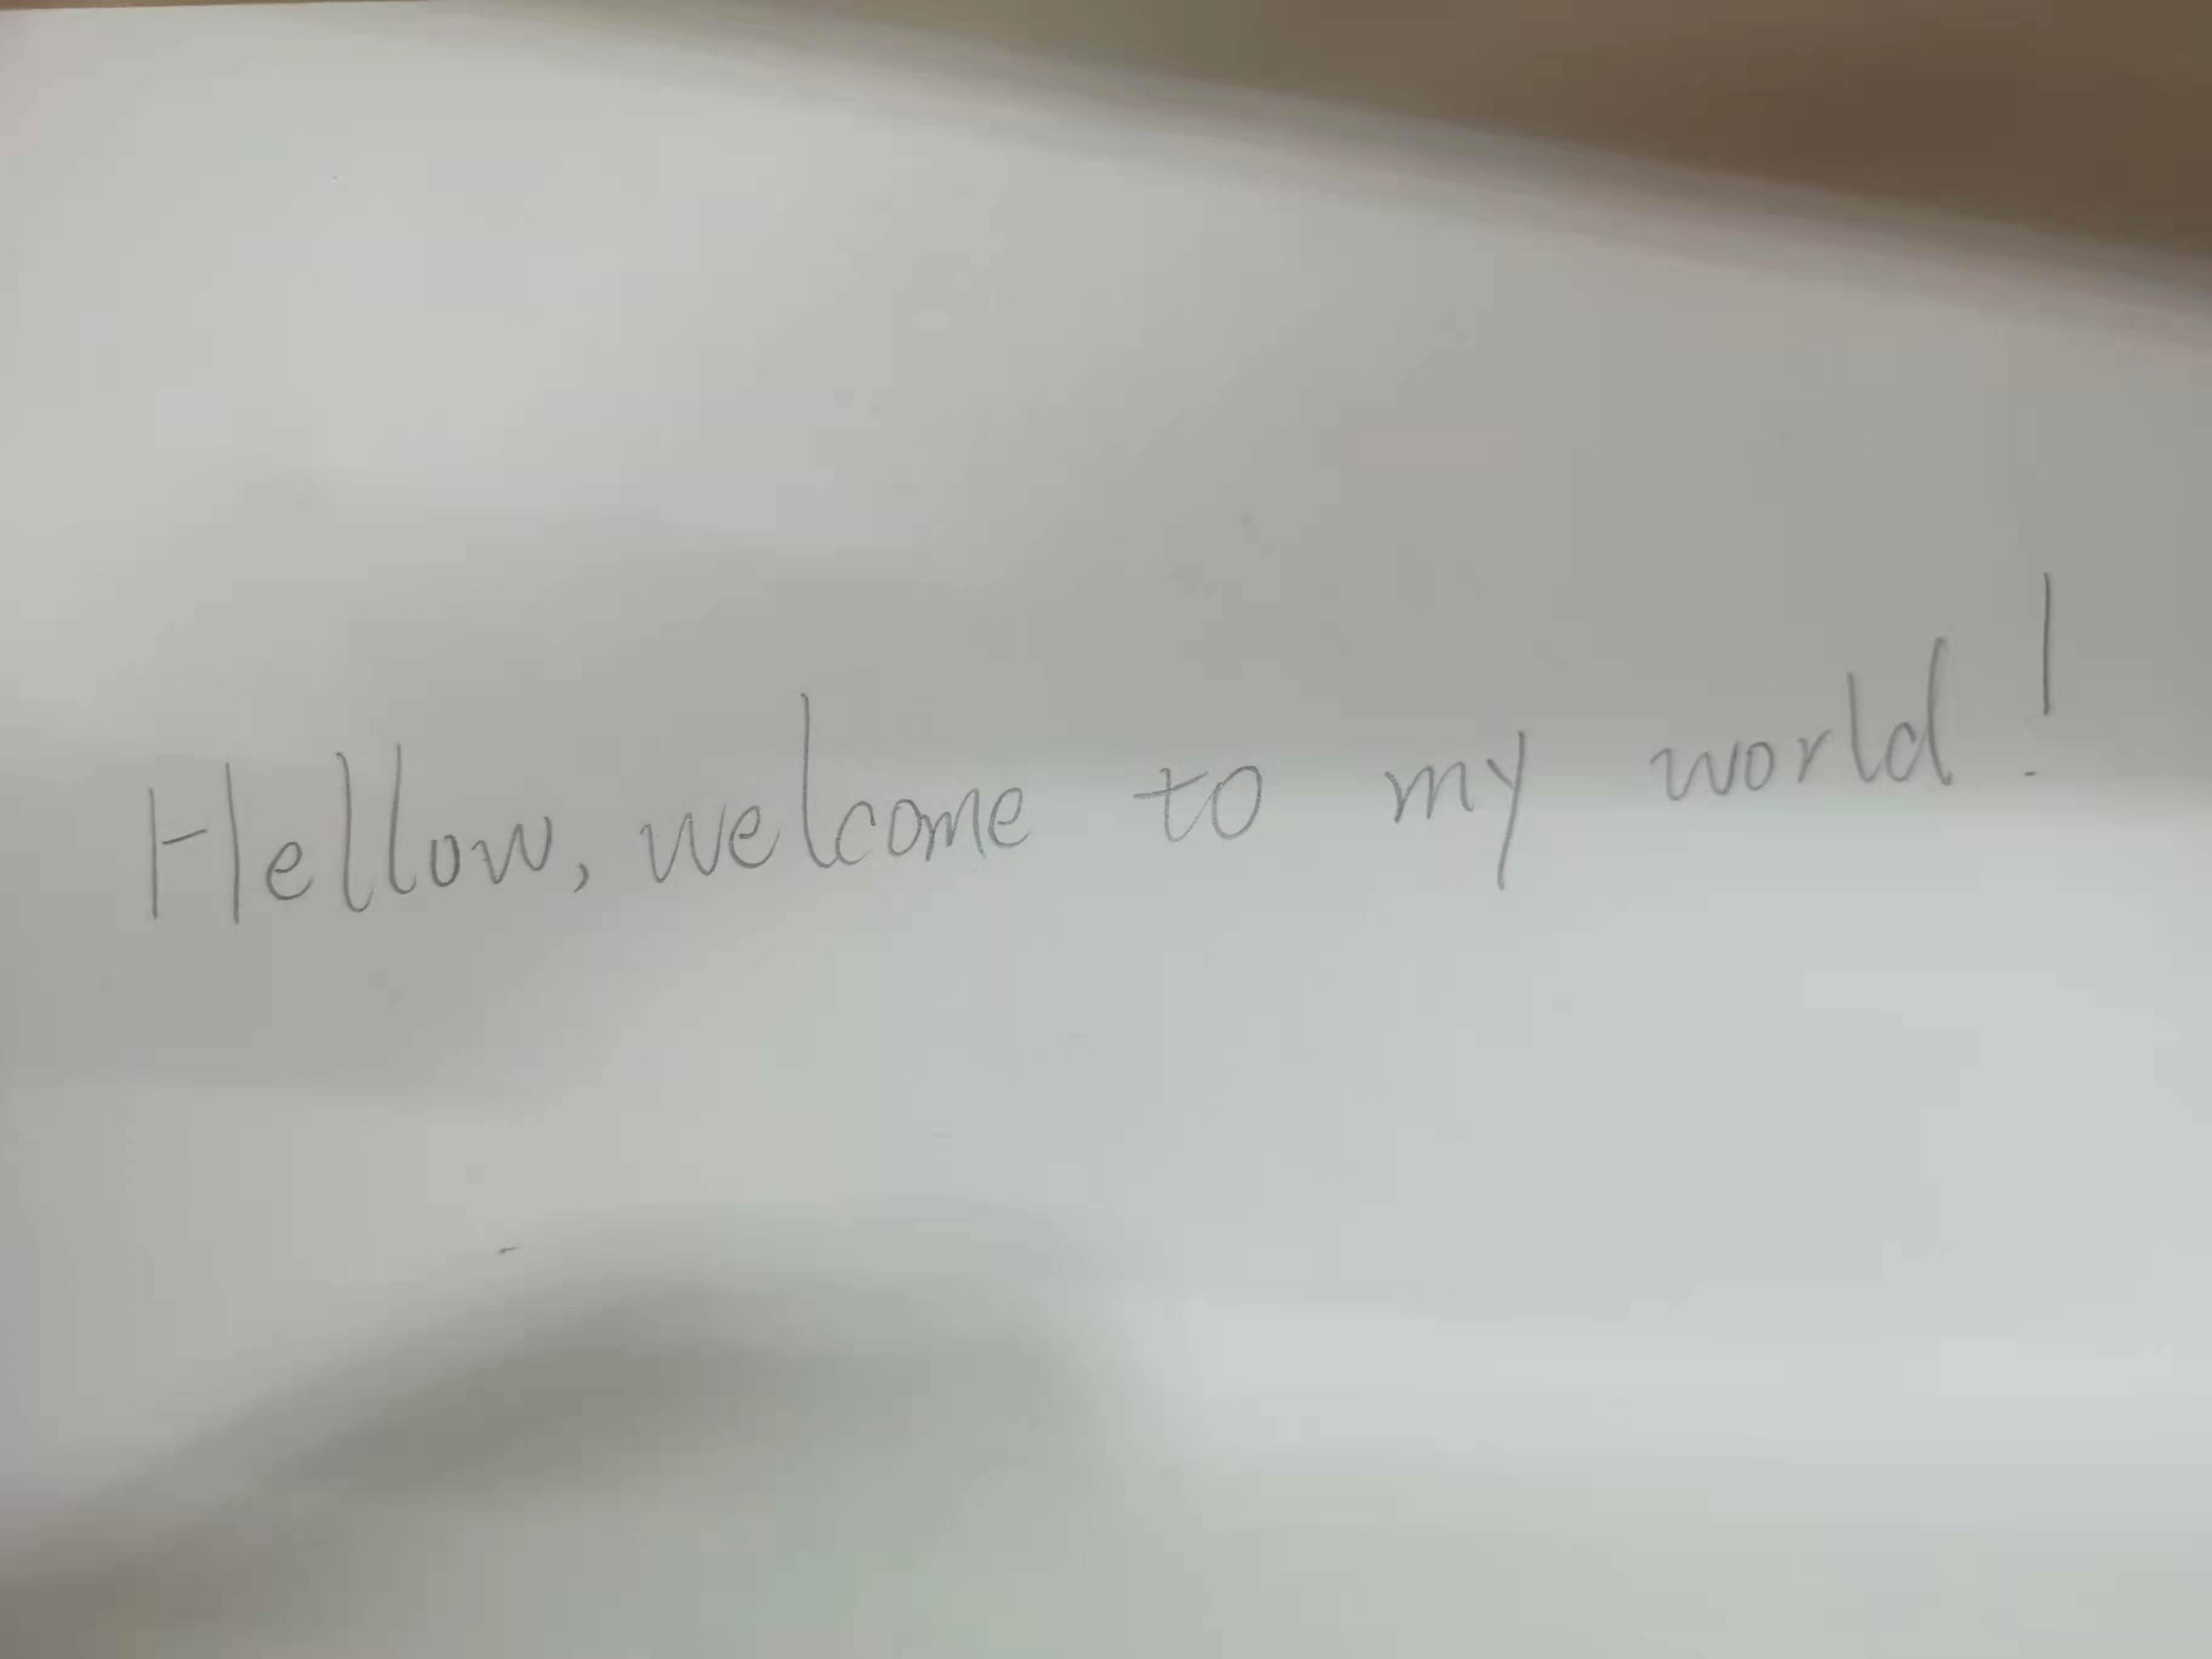 Hellow, welcome to my world!